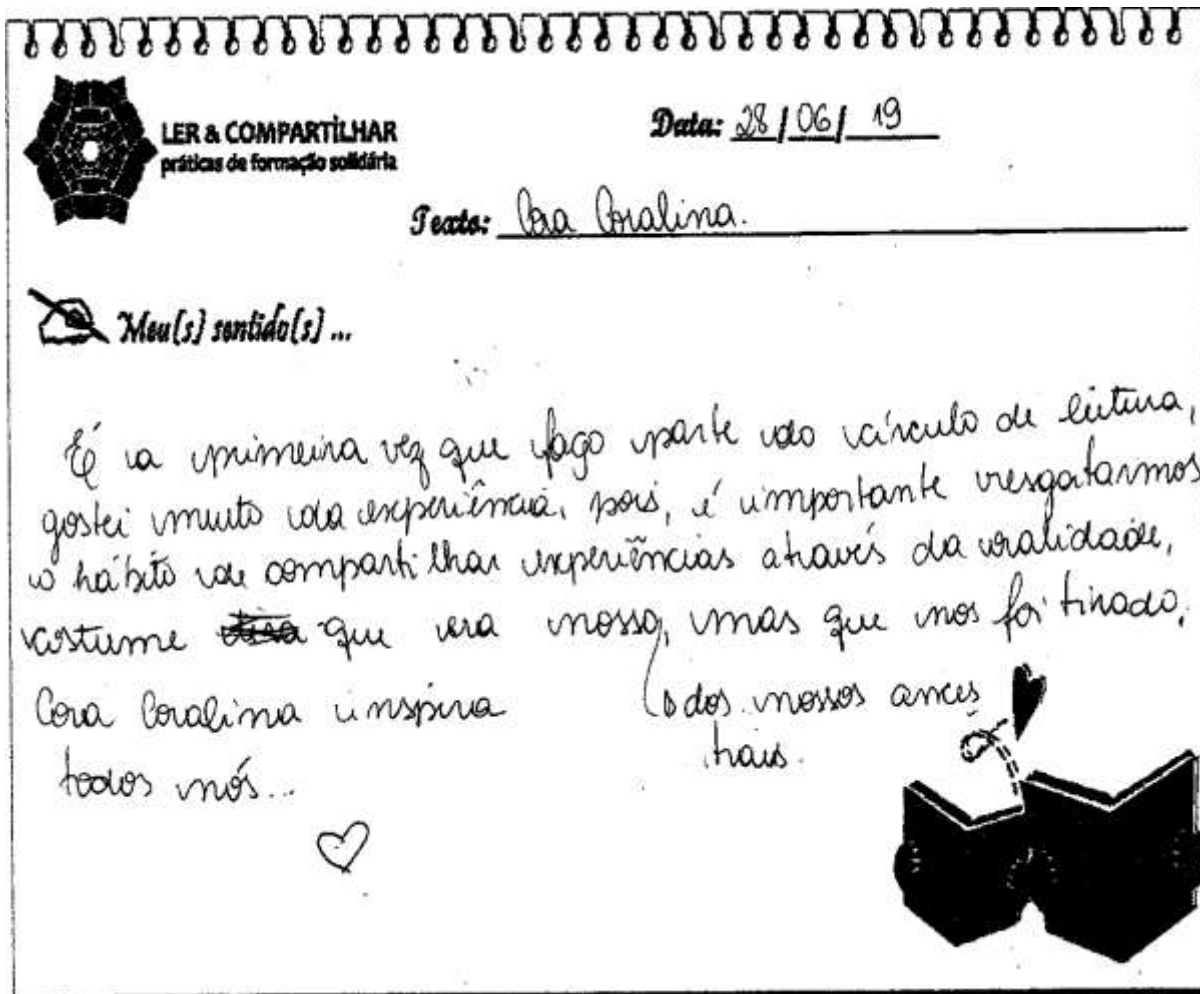 LER & COMPARTILHAR
práticas de formação solidária
Data: 28/06/19
Texto: Cora Coralina.
Meu(s) sentido(s)...
É a primeira vez que faço parte do círculo de leitura,
gostei muito da experiência, pois, é importante resgatarmos
o hábito de compartilhar experiências através da oralidade,
costume que era nosso, mas que nos foi tirado.
dos nossos ances
trais.
Cora Coralina inspira
todos nós...